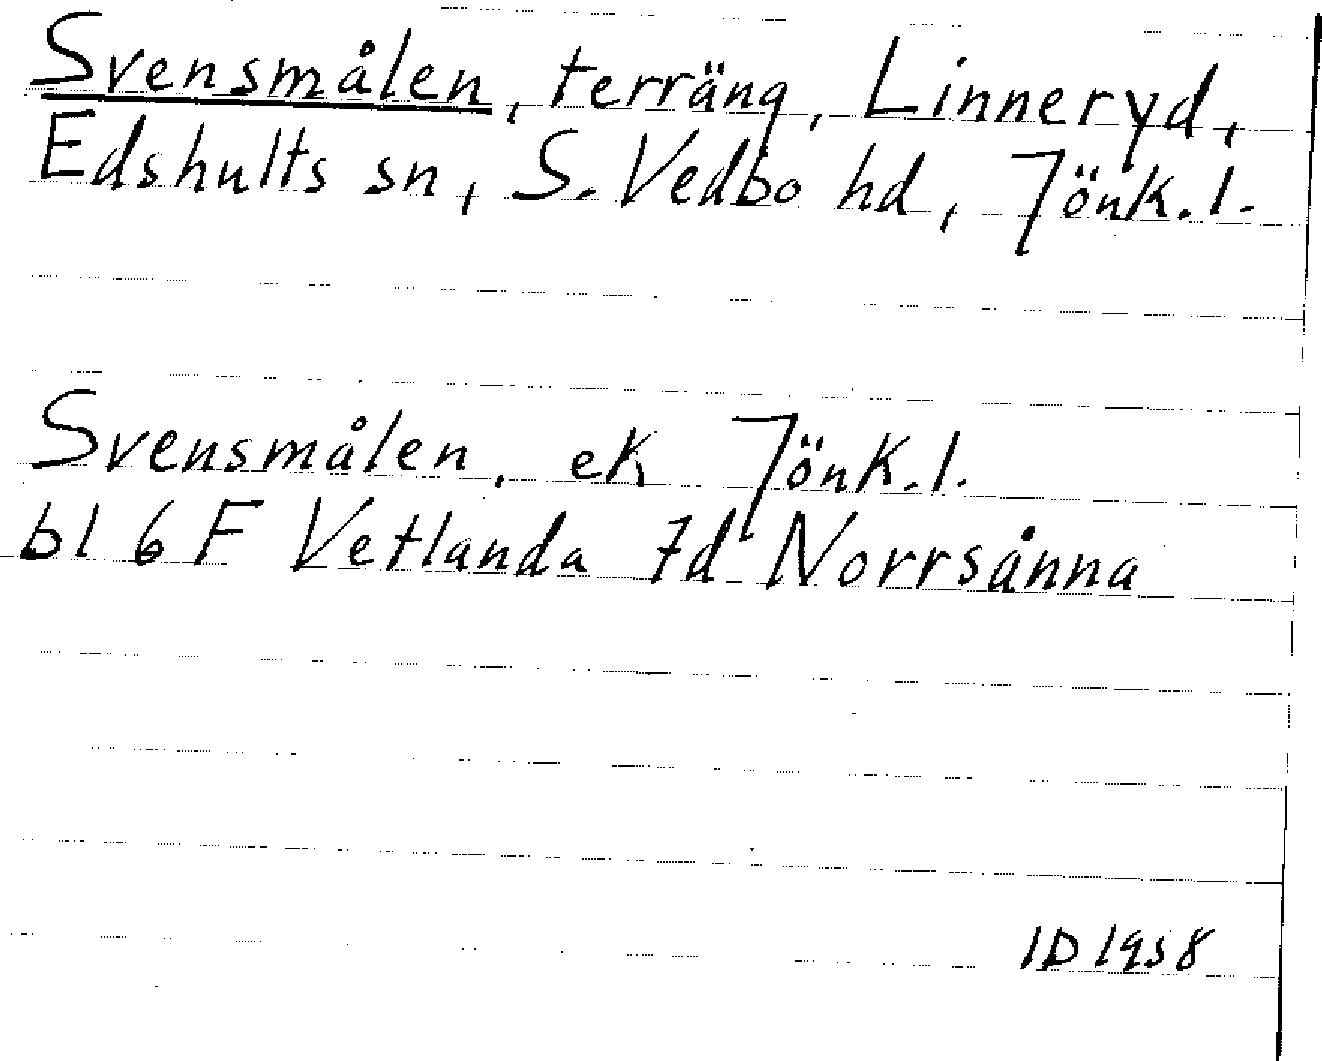 Svensmålen, terräng, Linneryd,
Edshults sn, S. Vedbo hd, Jönk. l.
Svensmålen, ek Jönk. l.
bl 6 F Vetlanda 7d Norrsånna
ID 1958